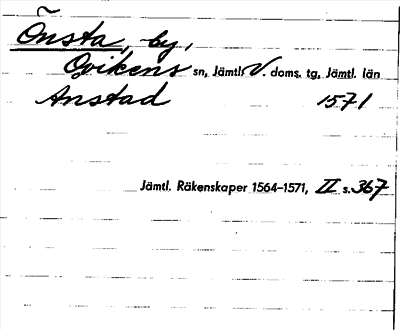 Önsta, by,
Ovikens sn, Jämtl. V. doms. tg, Jämtl. län
Anstad 1571
Jämtl. Räkenskaper 1564–1571, II s. 367